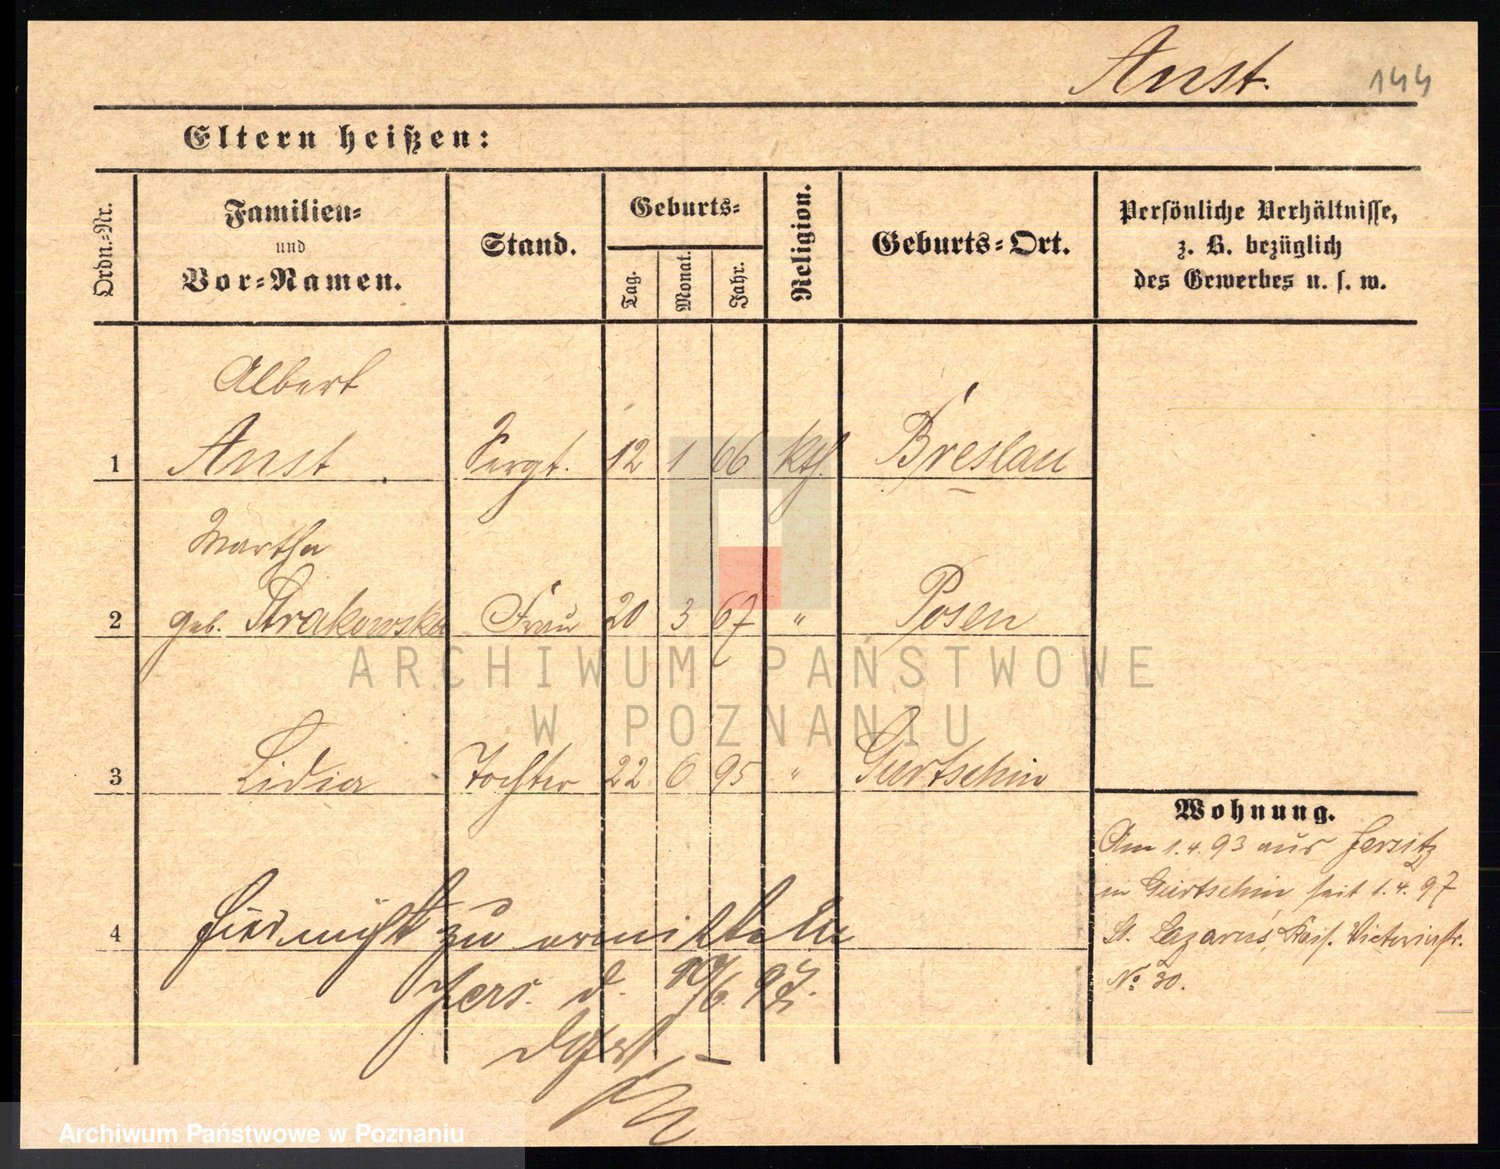 Anst. 144
Eltern heißen:
Ordn.-Nr.
Familien-
und
Vor-Namen.
Stand.
Geburts-
Tag.
Monat.
Jahr.
Religion.
Geburts-Ort.
Persönliche Verhältnisse,
z. B. bezüglich
des Gewerbes u. s. w.
Albert
1 Anst Sergt. 12 1 66 kth. Breslau
Martha
2 geb. Strakowska Frau 20 3 67 " Posen
3 Lidia Tochter 22 6 95 " Gurtschin
4 hier nicht zu ermitteln
Jers. d. 6. 97.
Wohnung.
Am 1.4.93 aus Jersitz
in Gurtschin seit 1.4.97
St. Lazarus, Kais. Victoriastr.
No 30.
ARCHIWUM PAŃSTWOWE
W POZNANIU
Archiwum Państwowe w Poznaniu